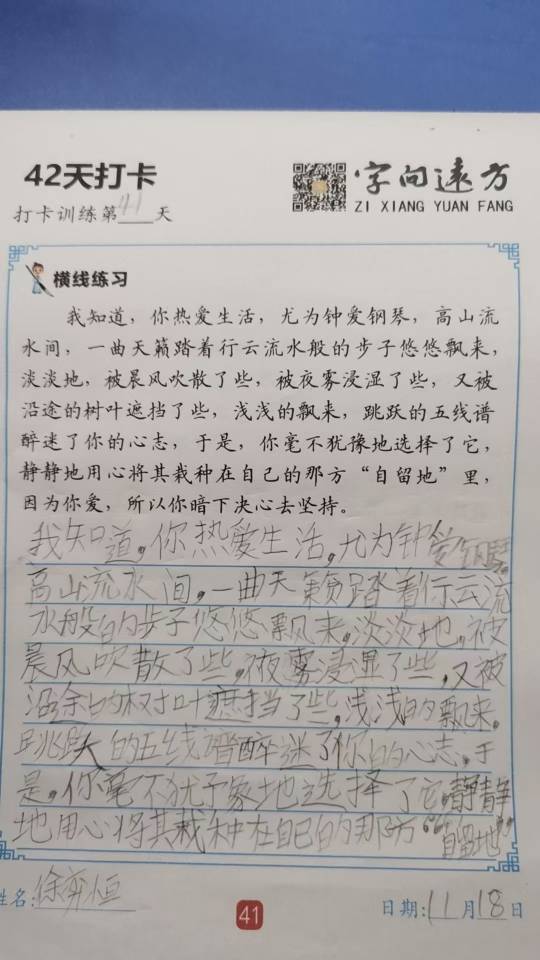 42天打卡
字向遠方
ZI XIANG YUAN FANG
打卡训练第41天
横线练习
我知道，你热爱生活，尤为钟爱钢琴，高山流
水间，一曲天籁踏着行云流水般的步子悠悠飘来，
淡淡地，被晨风吹散了些，被夜雾浸湿了些，又被
沿途的树叶遮挡了些，浅浅的飘来，跳跃的五线谱
醉迷了你的心志，于是，你毫不犹豫地选择了它，
静静地用心将其栽种在自己的那方“自留地”里，
因为你爱，所以你暗下决心去坚持。
我知道，你热爱生活，尤为钟爱钢琴，
高山流水间，一曲天籁踏着行云流
水般的步子悠悠飘来，淡淡地，被
晨风吹散了些，夜雾浸湿了些，又被
沿途的树叶遮挡了些，浅浅的飘来，
跳跃的五线谱醉迷了你的心志，于
是，你毫不犹豫地选择了它，静静
地用心将其栽种在自己的那方“自留地”
姓名：徐弈恒
41
日期：11月18日